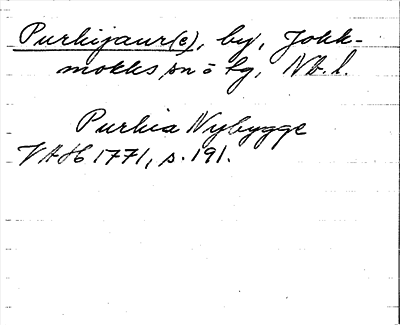 Purkijaur(e), by, Jokk-
mokks sn o lg, Nb. l.
Purkia Nybygge
VAH 1771, s. 191.